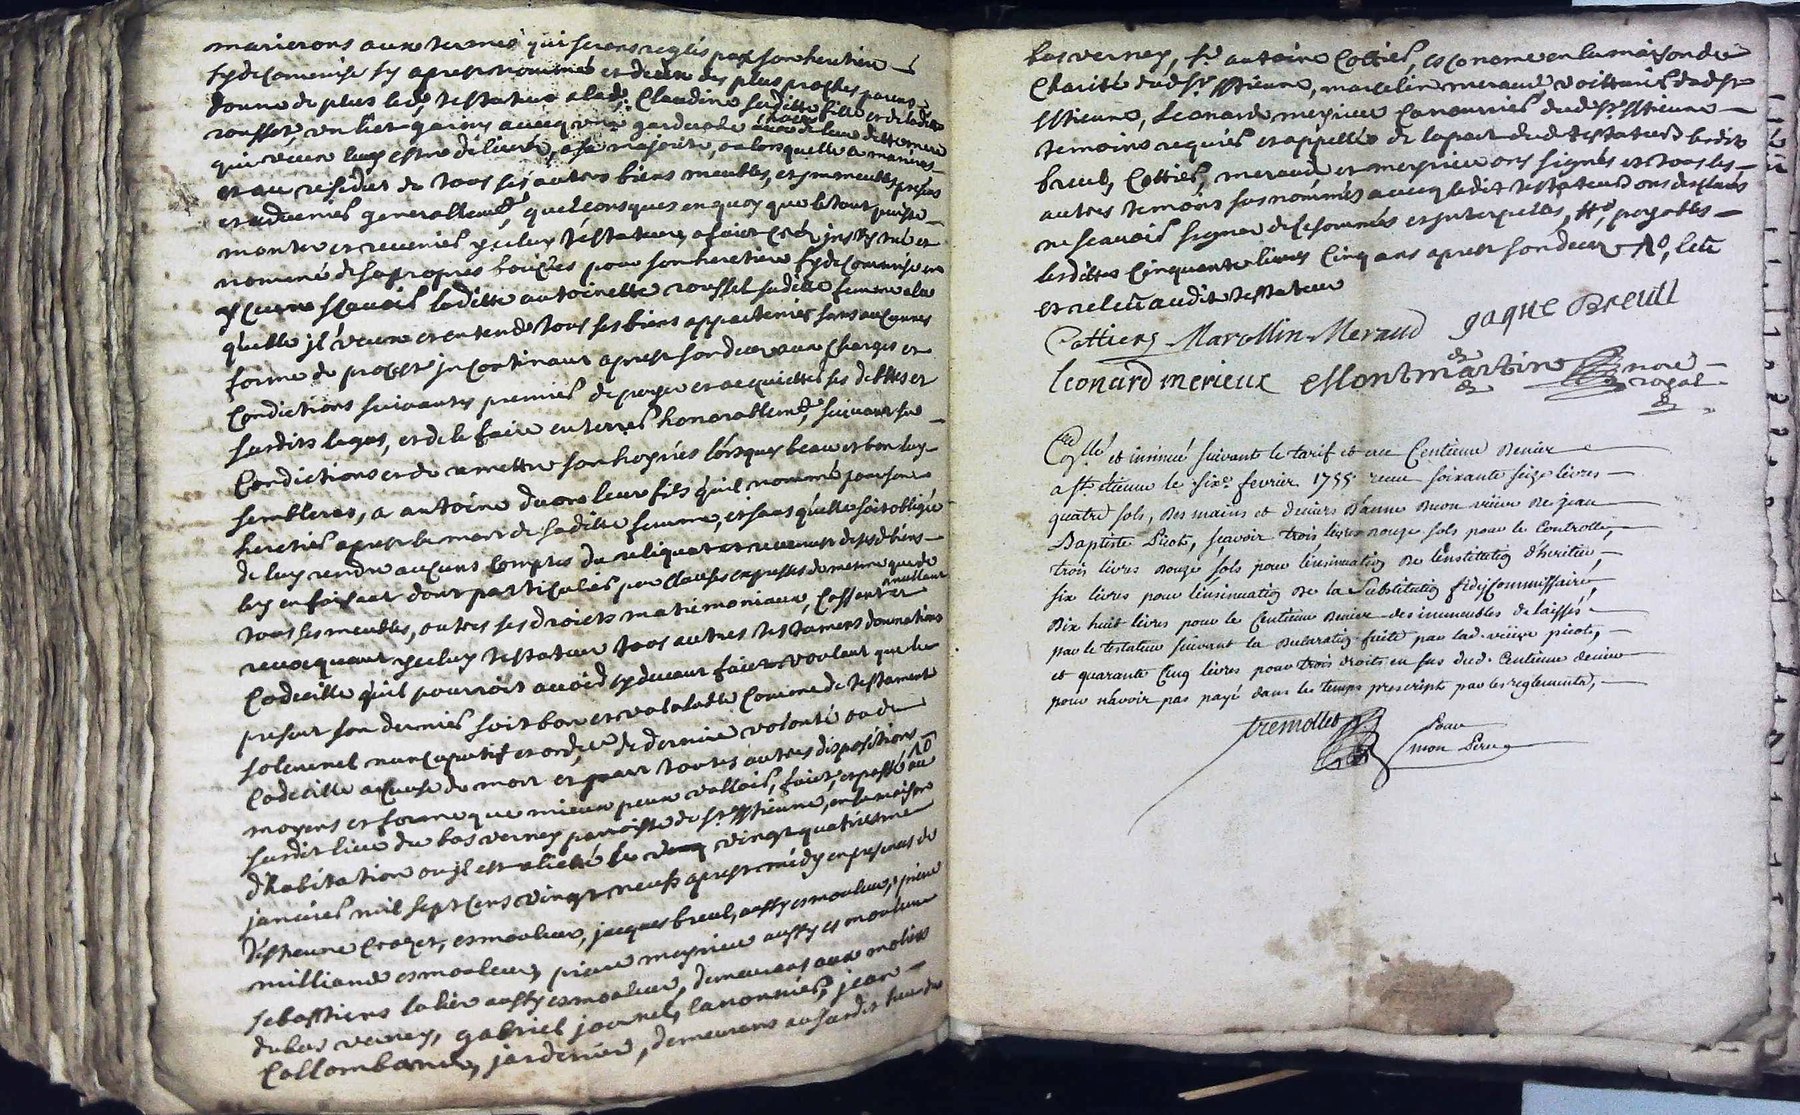 marierons aux termes qui serons reglés par son heritier
fydecomenise sy apres nommé et deux des plus proches parens
donne de plus led. testateur a lad. Claudine sa ditte fille et de ladite
rousset, un liet garny avecq une garderobe de leur ditte mere
qui veux luy estre delivré, a sa majorité, ou lors quelle se mariera
et au residus de tous ses autres biens meubles, et immeubles presens
et advenir generallement quelconques en quoy que le tout puisse
monter et revenir yceluy testateur a fait créé institué et
nommé de sa propre bouche pour son heretiere fydecommise
scavoir laditte antoinette rousset sa ditte femme a la
quelle il veux et entend tous ses biens appartenir sans aucunes
forme de procet incontinant apres son decez aux charges et
Condictions suivantes premier de payer et acquitter ses dettes et
susdits legas, et de le faire enterrer honorablement, suivant sa
Condictions et de remettre son hoyrie lorsque beau et bon luy
semblera, a antoine duon leur fils qu'il nomme pour son
heretier apres la mort de sa ditte femme, et sans quelle soit obligée
de luy rendre aucuns comptes du reliquat et revenus desd. biens
luy en faisant dont particulier par clauses expresses de mesme que de
tous ses meubles, outres ses droits matrimoniaux, Cassent et annullant
revocquant yceluy testateur tous autres testamens donnations
Codecille qu'il pourroit avoir cy devant fait voulant que le
present son dernier soit bon et valalable Comme de testament
solemnel nuncupatif et ordre de derniere volonté ou de
Codecille a cause de mort et par toutes autres dispositions
moyens et forme que mieux peux valloir, fait, et passé au
susdit lieu du bas verney parroisse de st. estienne, en la maison
d'habitation ou il est alicté le vingt quatriesme
janvier mil sept cens vingt neuf apres midy en presences de
estienne Crozet, esmouleur, jacques breul, aussy esmouleur, pierre
milliand esmouleur, pierre meyrieu aussy esmouleur
sebastiens lalier aussy esmouleur, demeurans aux molins
du bas verney, gabriel journel, canonnier, jean
Collombanet, jardinier, demeurens au susdit lieu du
bas verney, sr. antoine Cottier, esconome en la maison de
Charité dud. st. estienne, marcelin meraud voitturier dud. st.
estienne, Leonard meyrieu Canonnier dud. st. estienne
temoins requis et appellés de la part dud. testateur lesdits
breul, Cottier, meraud et meyrieu ons signés et tous les
autres temoins sus nommés avecq ledit testateur ons declarés
ne scavoir signer de ce sommés et interpellés, payables
lesdittes cinquante livres cinq ans apres son decez, leu
et releu audit testateur
Cottier Marcellin Meraud jaque Breull
leonard merieux Montmartin nore royal
Collé et insinué suivant le tarif et au Centieme denier
a St. etienne le sixe. fevrier 1755 receu soixante seize livres
quatre sols, des mains et deniers d'anne duon veuve de jean
Baptiste Picot, sçavoir trois livres douze sols pour le Controlle,
trois livres douze sols pour linsinuation de linstitution d'heritier,
six livres pour linsinuation de la Substitution fideicommissaire,
dix huit livres pour le Centieme denier des immeubles delaissés
par le testateur suivant la declaration faite par lad. veuve picot,
et quarante cinq livres pour trois droits en sus dud. Centieme denier
pour n'avoir pas payé dans les temps prescript par les reglements,
tremollet pour
mon Pere